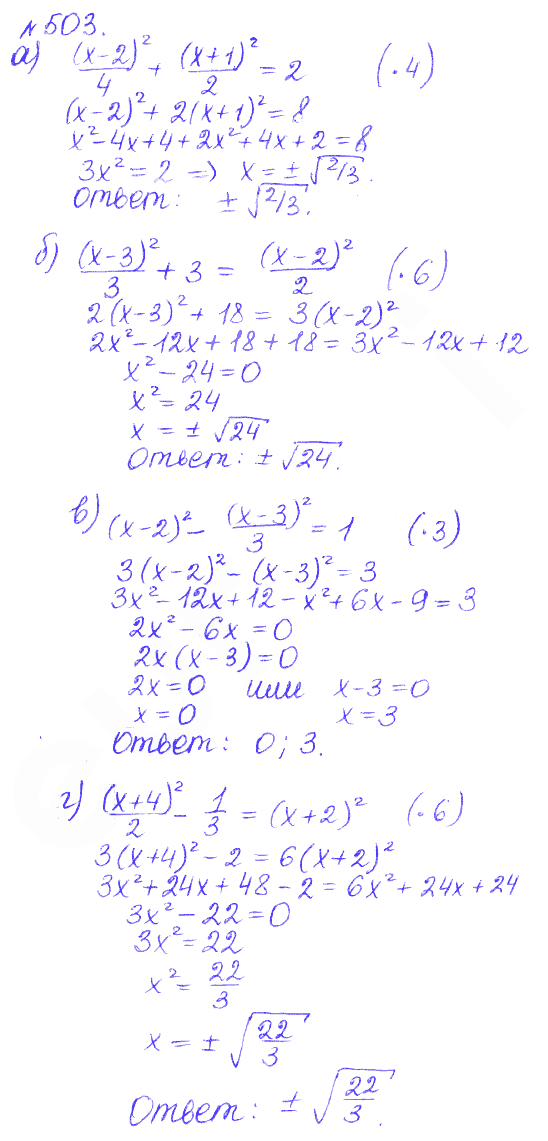 №503.
а) (x-2)²/4 + (x+1)²/2 = 2 (·4)
(x-2)² + 2(x+1)² = 8
x² - 4x + 4 + 2x² + 4x + 2 = 8
3x² = 2 => x = ± √2/3.
Ответ: ± √2/3.
б) (x-3)²/3 + 3 = (x-2)²/2 (·6)
2(x-3)² + 18 = 3(x-2)²
2x² - 12x + 18 + 18 = 3x² - 12x + 12
x² - 24 = 0
x² = 24
x = ± √24
Ответ: ± √24.
в) (x-2)² - (x-3)²/3 = 1 (·3)
3(x-2)² - (x-3)² = 3
3x² - 12x + 12 - x² + 6x - 9 = 3
2x² - 6x = 0
2x(x-3) = 0
2x = 0 или x-3 = 0
x = 0 x = 3
Ответ: 0; 3.
г) (x+4)²/2 - 1/3 = (x+2)² (·6)
3(x+4)² - 2 = 6(x+2)²
3x² + 24x + 48 - 2 = 6x² + 24x + 24
3x² - 22 = 0
3x² = 22
x² = 22/3
x = ± √22/3
Ответ: ± √22/3.